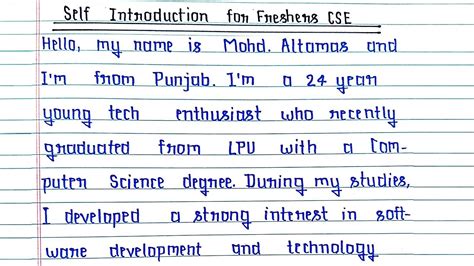 Self Introduction for Freshers CSE
Hello, my name is Mohd. Altamas and
I'm from Punjab. I'm a 24 year
young tech enthusiast who recently
graduated from LPU with a Com-
puter Science degree. During my studies,
I developed a strong interest in soft-
ware development and technology